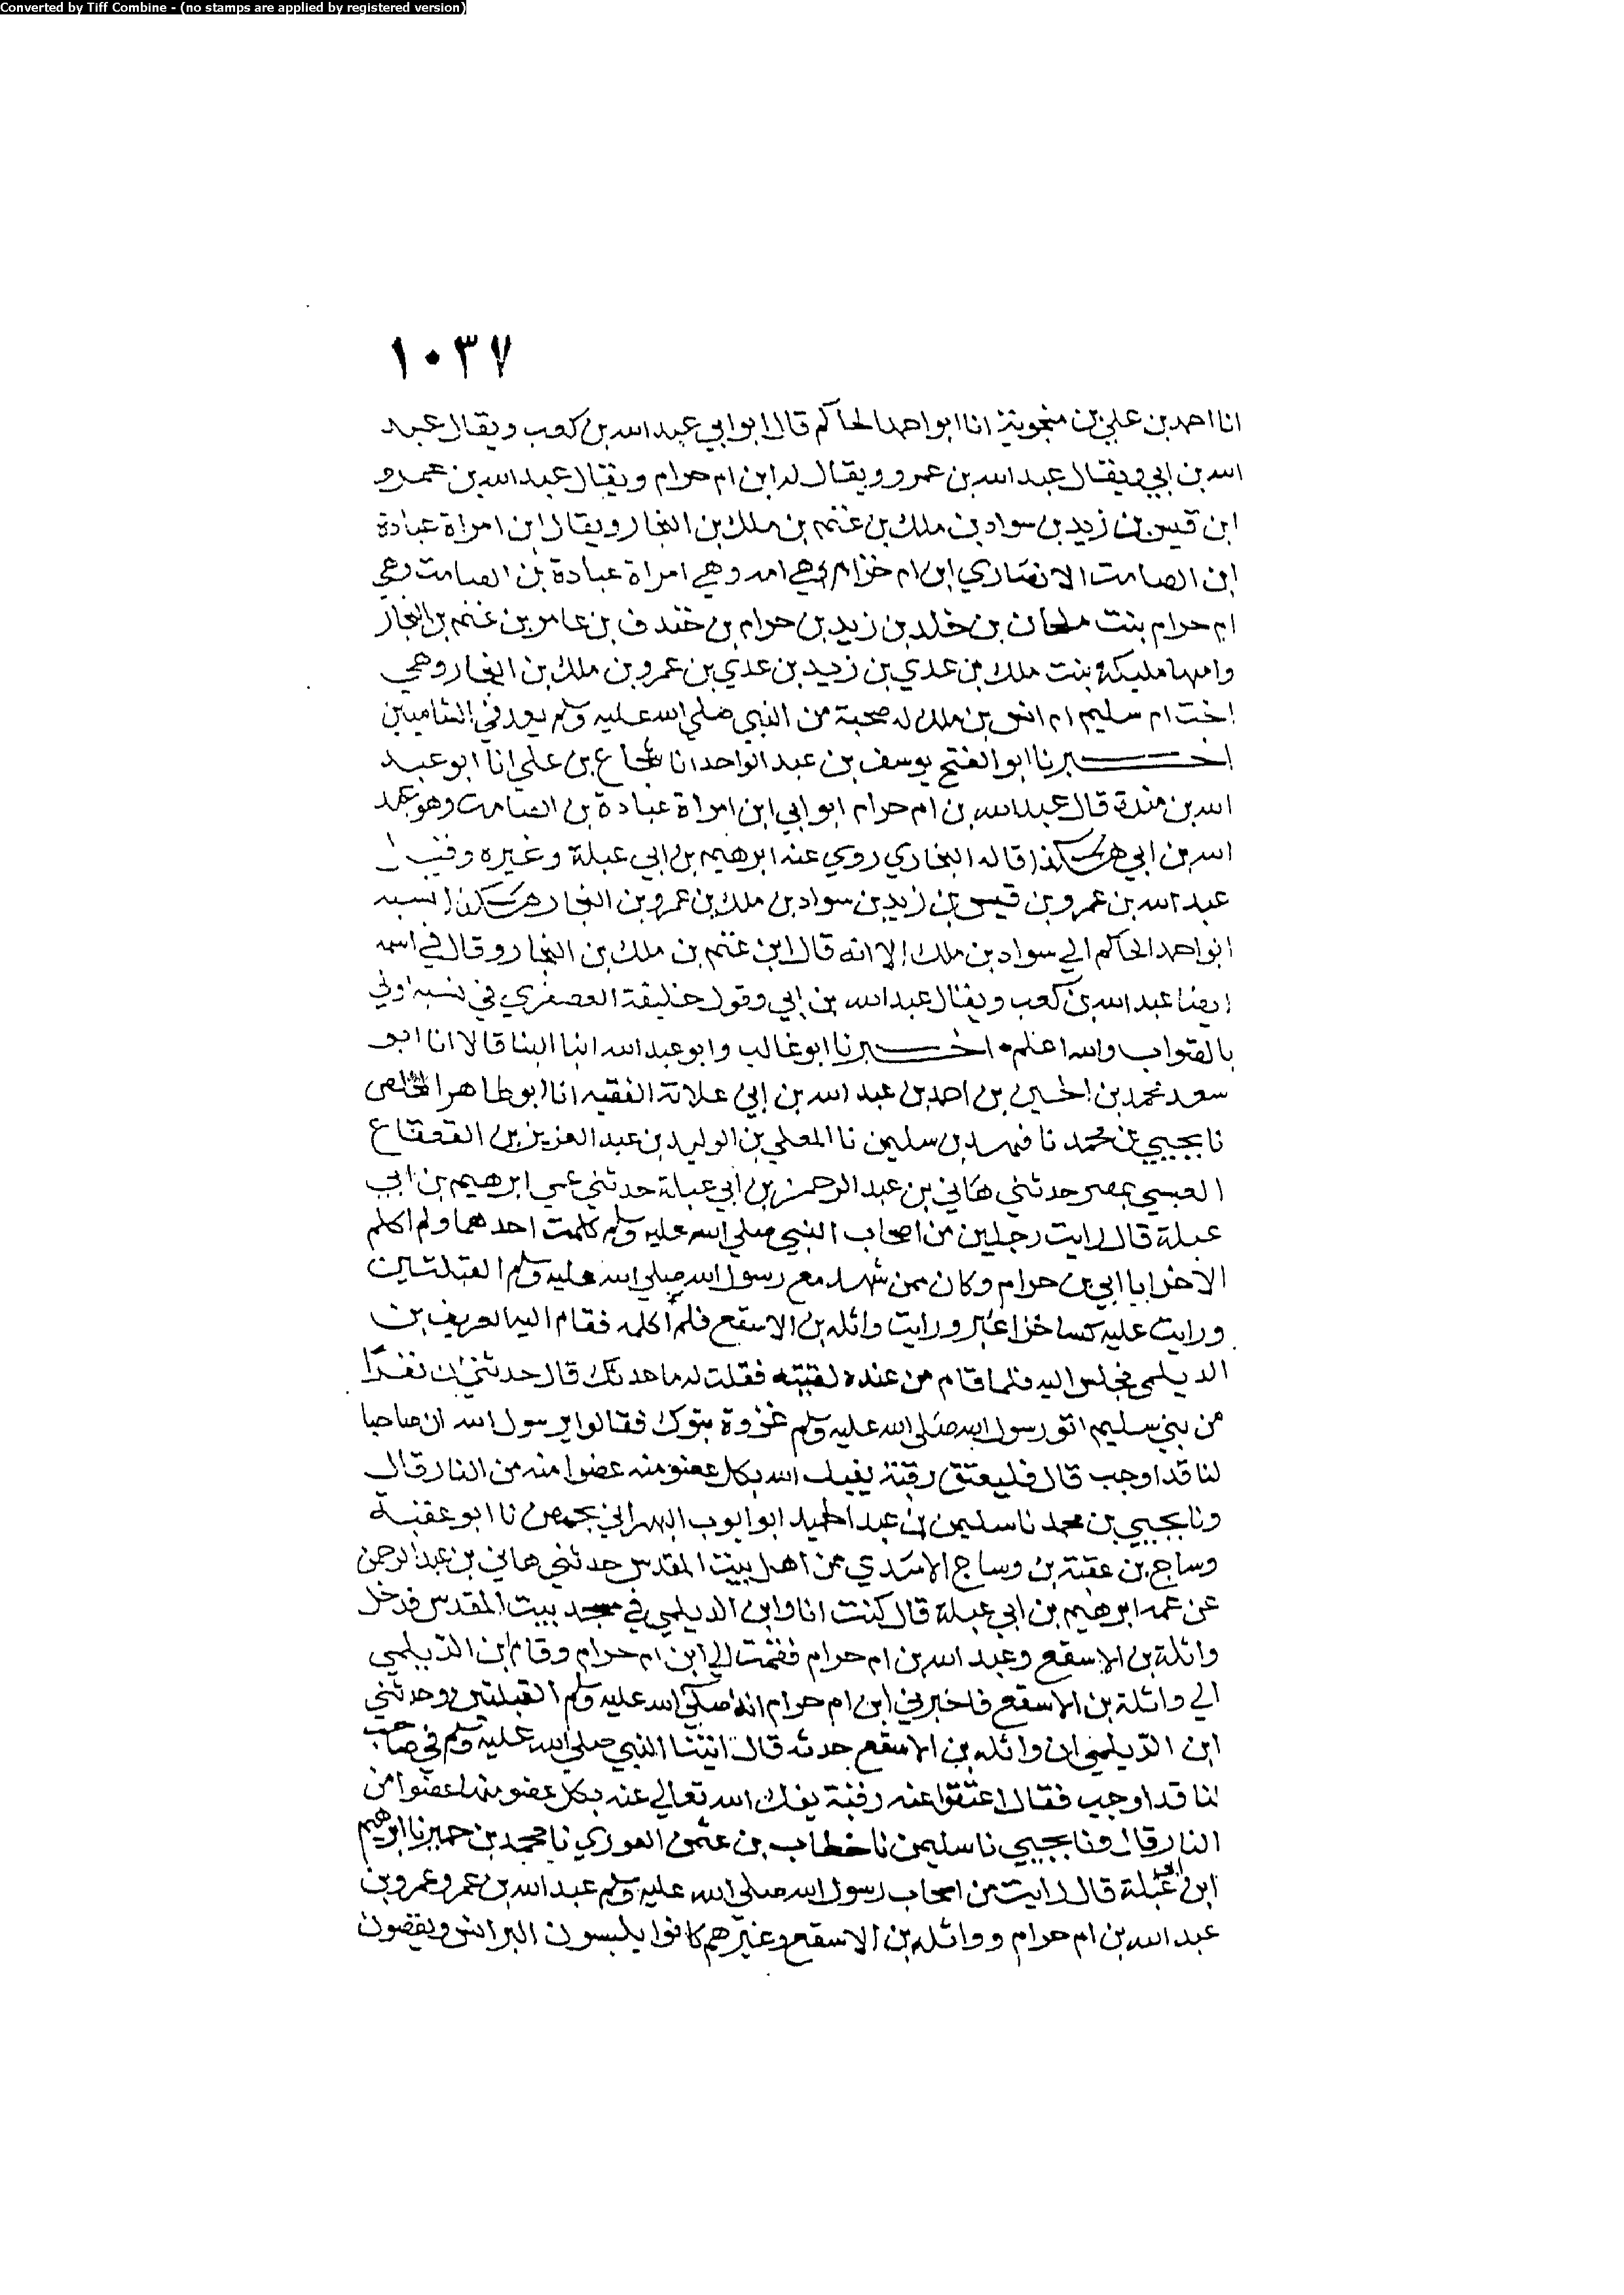 Converted by Tiff Combine - (no stamps are applied by registered version)
١٠٣٧
انا احمد بن علي بن منجوية انا ابو احمد الحاكم قال ابو ابي عبد الله بن كعب ويقال عبد
الله بن ابي ويقال عبد الله بن عمرو ويقال له ابن ام حرام ويقال عبد الله بن عمرو
ابن قيس بن زيد بن سواد بن ملك بن غنم بن ملك بن النجار ويقال ابن امراة عبادة
ابن الصامت الانصاري ابن ام حرام وهي امه وهي امراة عبادة بن الصامت وهي
ام حرام بنت ملحان بن خلد بن زيد بن حرام بن خندف بن عامر بن غنم بن النجار
وامها مليكة بنت ملك بن عدي بن زيد بن عدي بن عمرو بن ملك بن النجار وهي
اخت ام سليم ام انس بن ملك له صحبة من النبي صلي الله عليه وسلم يعد في الشاميين
اخبرنا ابو الفتح يوسف بن عبد الواحد انا شجاع بن علي انا ابو عبد
الله بن مندة قال عبد الله بن ام حرام ابو ابي ابن امراة عبادة بن الصامت وهو عبد
الله بن ابي هكذا قاله البخاري روي عنه ابرهيم بن ابي عبلة وغيره وقيل
عبد الله بن عمرو بن قيس بن زيد بن سواد بن ملك بن عمرو بن النجار هكذا نسبه
ابو احمد الحاكم الي سواد بن ملك الا انه قال ابن غنم بن ملك بن النجار وقال في اسمه
ايضا عبد الله بن كعب ويقال عبد الله بن ابي وقول خليفة العصفري في نسبه اولي
بالصواب والله اعلم • اخبرنا ابو غالب وابو عبد الله ابنا البنا قالا انا ابو
سعد محمد بن الحسين بن احمد بن عبد الله بن ابي علانة الفقيه انا ابو طاهر المخلص
نا يحيي بن محمد نا فهد بن سليمن نا المعلي بن الوليد بن عبد العزيز بن القعقاع
العبسي بمصر حدثني هاني بن عبد الرحمن بن ابي عبلة حدثني عمي ابرهيم بن ابي
عبلة قال رايت رجلين من اصحاب النبي صلي الله عليه وسلم كلمت احدهما ولم اكلم
الاخر ابا ابي بن حرام وكان ممن شهد مع رسول الله صلي الله عليه وسلم القبلتين
ورايت عليه كسا خز اغبر ورايت واثلة بن الاسقع فلم اكلمه فقام اليه العريف بن
الديلمي فجلس اليه فلما قام من عنده لقيته فقلت له ما حدثك قال حدثني ان نفرا
من بني سليم اتو رسول الله صلي الله عليه وسلم غزوة تبوك فقالوا يرسول الله ان صاحبا
لنا قد اوجب قال فليعتق رقبة يفك الله بكل عضو منه عضوا منه من النار قال
ونا يحيي بن محمد نا سليمن بن عبد الحميد ابو ايوب البهراني بحمص نا ابو عقبة
وساج بن عقبة بن وساج الاسدي من اهل بيت المقدس حدثني هاني بن عبد الرحمن
عن عمه ابرهيم بن ابي عبلة قال كنت انا وابن الديلمي في مسجد بيت المقدس فدخل
واثلة بن الاسقع وعبد الله بن ام حرام فقمت الي ابن ام حرام وقام ابن الديلمي
الي واثلة بن الاسقع فاخبرني ابن ام حرام انه صلي الله عليه وسلم القبلتين وحدثني
ابن الديلمي ان واثلة بن الاسقع حدثه قال اتينا النبي صلي الله عليه وسلم في صاحب
لنا قد اوجب فقال اعتقوا عنه رقبة يفك الله تعالي عنه بكل عضو منها عضوا من
النار قال ونا يحيي نا سليمن نا خطاب بن عثمن الفوزي نا محمد بن حمير نا ابرهيم
ابن ابي عبلة قال رايت من اصحاب رسول الله صلي الله عليه وسلم عبد الله بن عمر وعمرو بن
عبد الله بن ام حرام وواثلة بن الاسقع وغيرهم كانوا يلبسون البرانس ويقصون